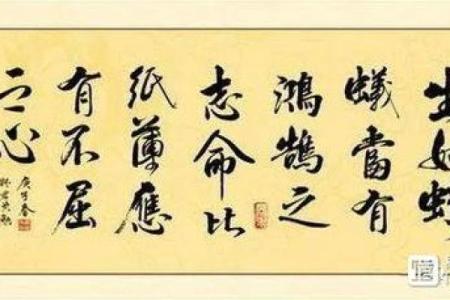 生如螻
蟻當有
鴻鵠之
志命比
紙薄應
有不屈
之心
庚子春